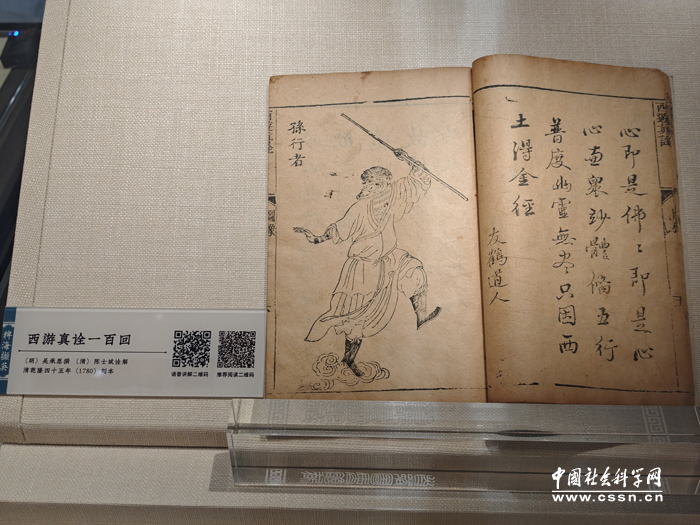 孫行者
圖像
西遊真詮
心即是佛〻即是心
心書眾妙體俻五行
普度幽靈無尽只因西
土得金徑
友鶴道人
稗海撷英
西游真诠一百回
（明）吴承恩撰 （清）陈士斌诠解
清乾隆四十五年（1780）刻本
语音讲解二维码
推荐阅读二维码
中国社会科学网
www.cssn.cn